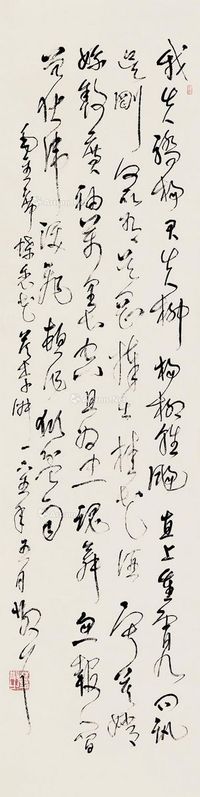 我失骄杨君失柳杨柳轻飏直上重霄九问讯
吴刚何所有吴刚捧出桂花酒寂寞嫦
娥舒广袖万里长空且为忠魂舞忽报人间
曾伏虎泪飞顿作倾盆雨
毛主席蝶恋花答李淑一